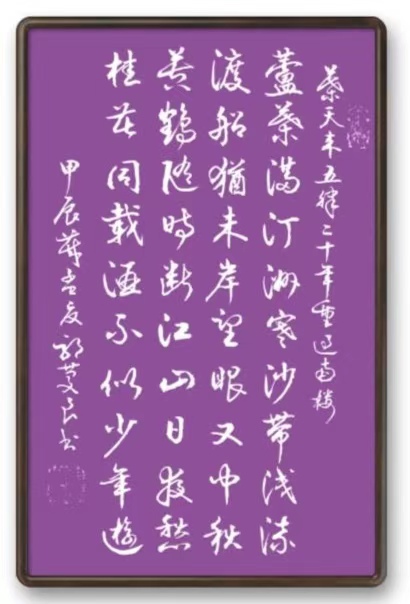 葉天未五律二十年重過南樓
蘆葉滿汀洲寒沙帶淺流
渡船猶未岸望眼又中秋
黃鶴隨時斷江山日夜愁
桂花同載酒不似少年遊
甲辰